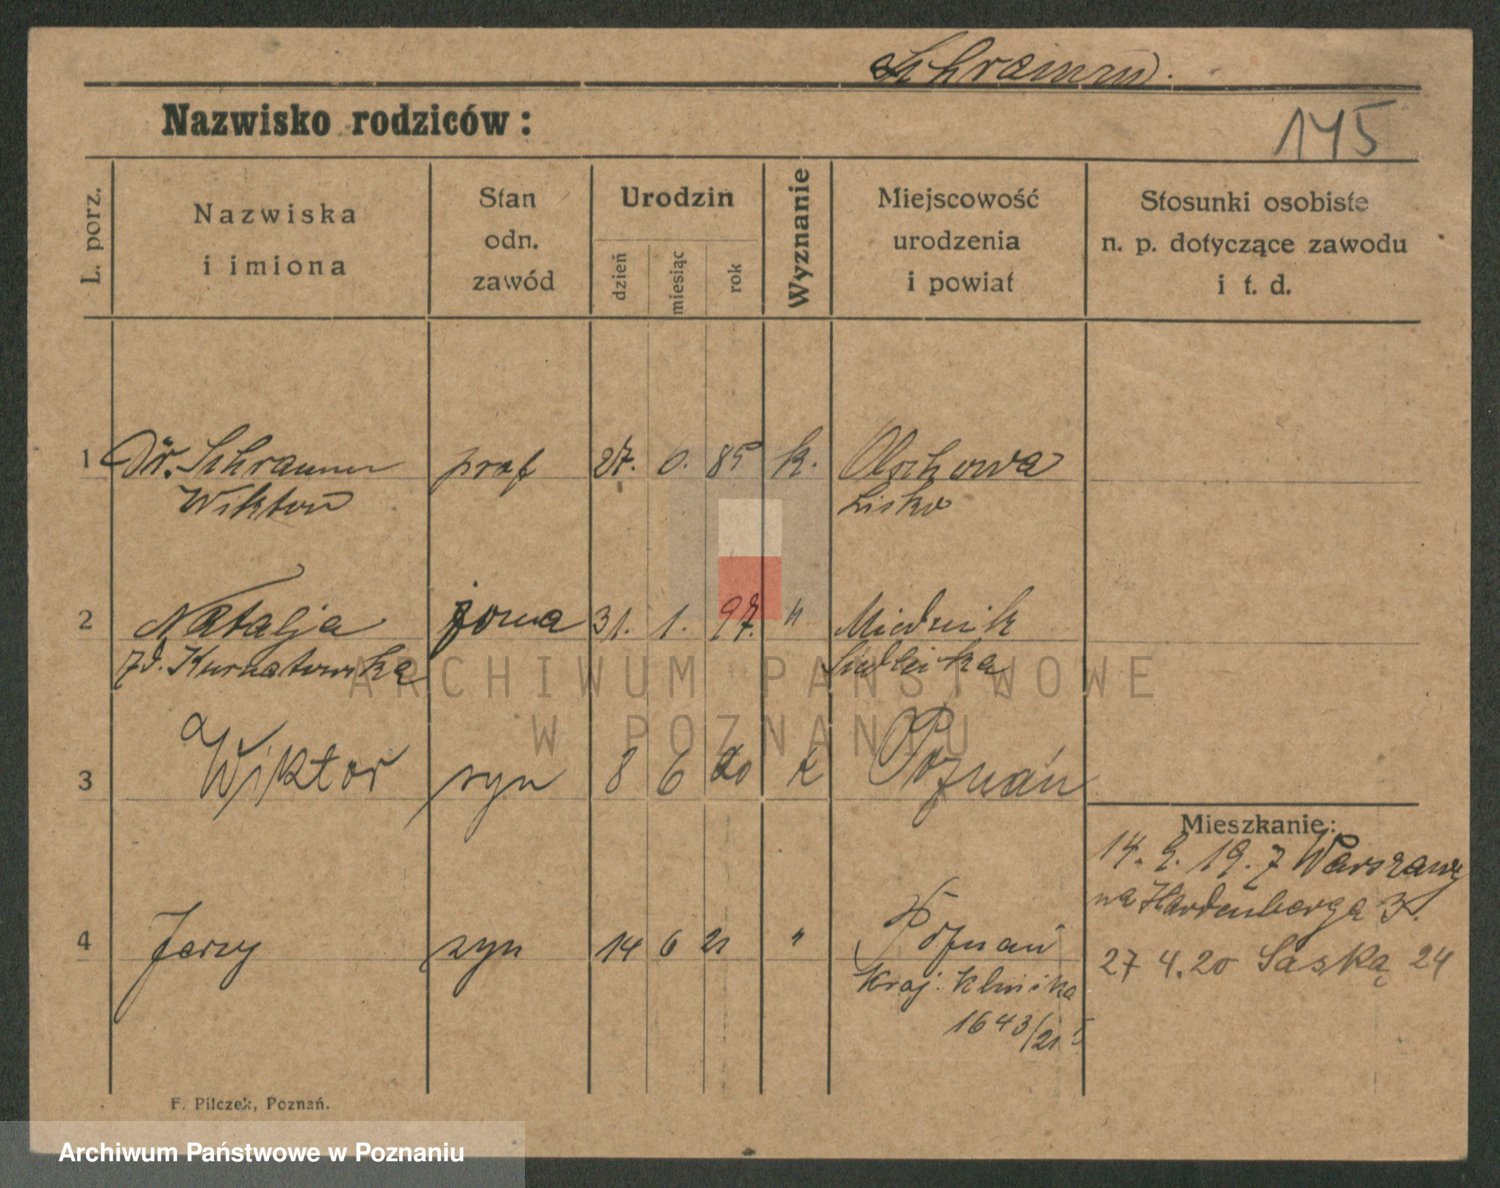 Schramm.
Nazwisko rodziców:
145
L. porz.
Nazwiska
i imiona
Stan
odn.
zawód
Urodzin
dzień
miesiąc
rok
Wyznanie
Miejscowość
urodzenia
i powiat
Stosunki osobiste
n. p. dotyczące zawodu
i t. d.
1 Dr. Schramm prof 27. 85 k. Olchowa
Wiktor Lisko
2 Natalja żona 31. 1. 97. " Miednik
Kurnatowska
3 Wiktor syn 8 6 20 k Poznań
Mieszkanie:
14. 9. 19. z Warszawy
na Hardenberga 3.
4 Jerzy syn 14 6 21 " Poznań
27 4. 20 Saską 24
Kraj. klinika
1643/21
F. Pilczek, Poznań.
ARCHIWUM PAŃSTWOWE
W POZNANIU
Archiwum Państwowe w Poznaniu